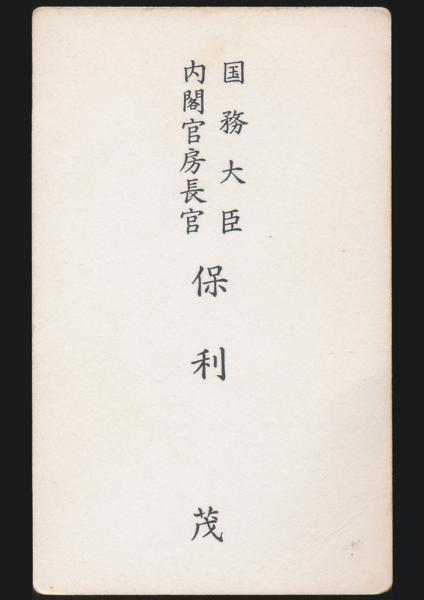 国務大臣
内閣官房長官
保利茂